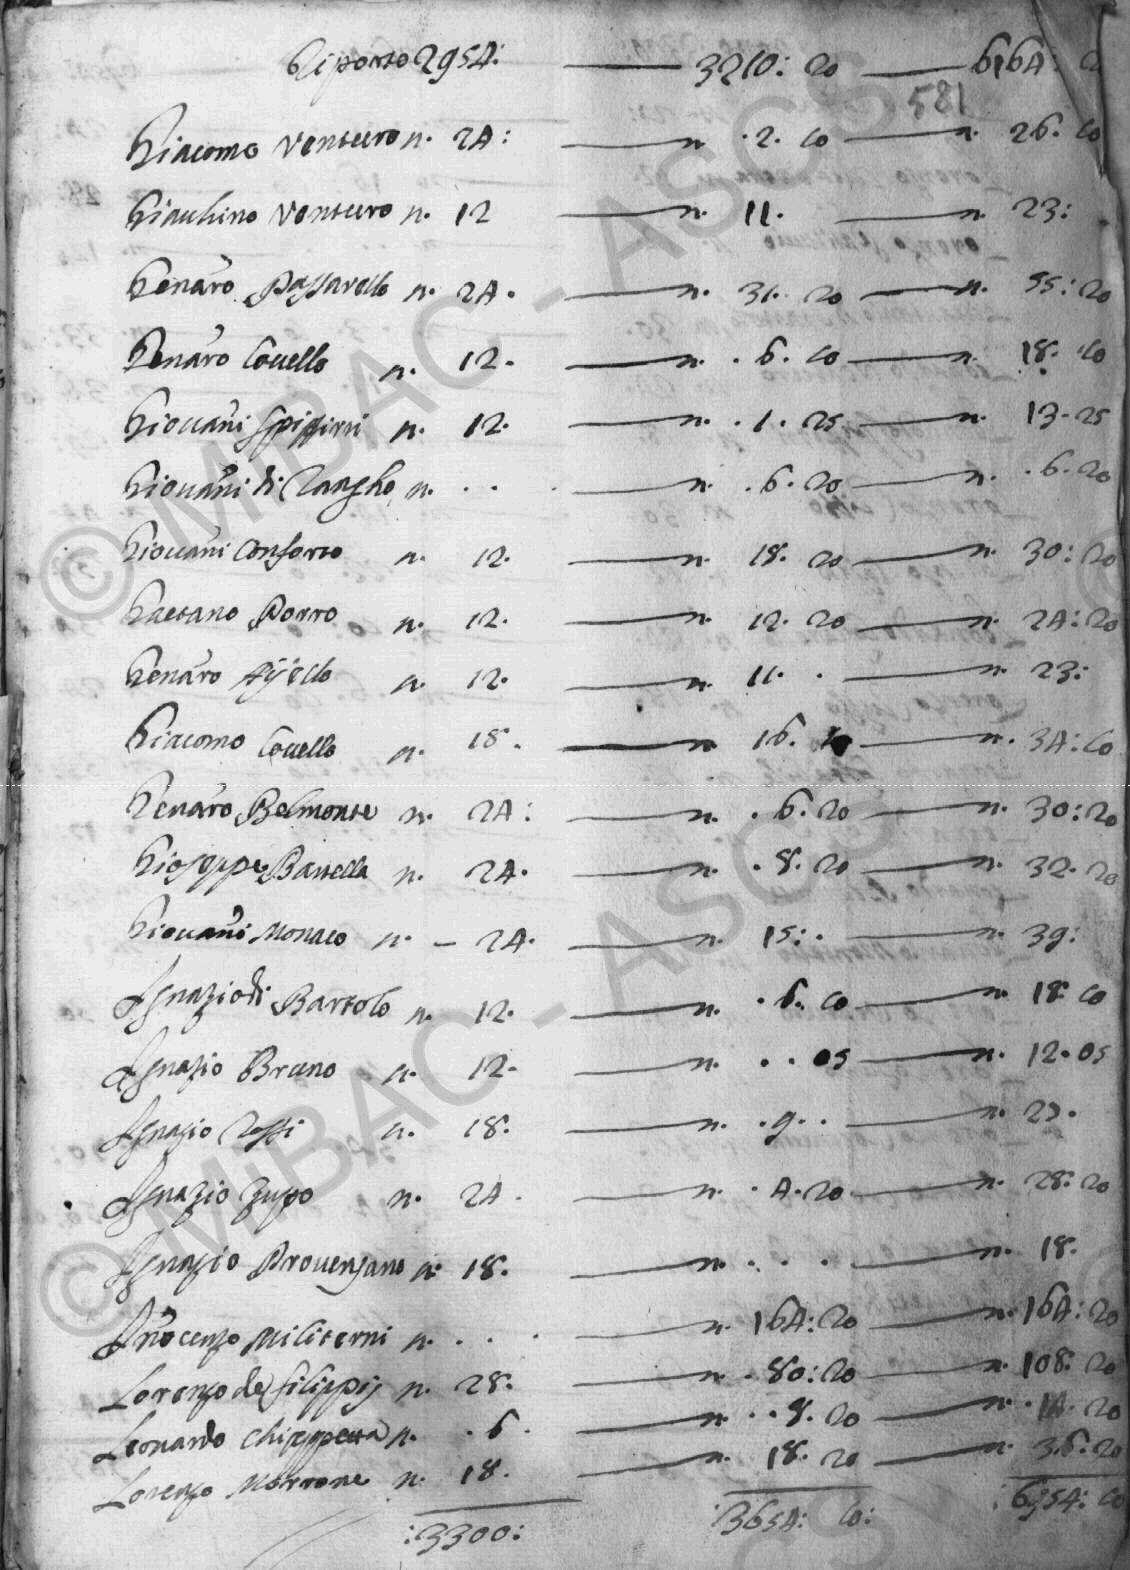 Riporto 2954: 3210: 20 6164: 20
581
Giacomo Venturo n. 24: n. .2. 10 n. 26. 10
Giachino Venturo n. 12 n. 11. n. 23:
Genaro Passarello n. 24. n. 31. 20 n. 55: 20
Genaro Covello n. 12. n. .6. 10 n. 18. 10
Giovani Spissirri n. 12. n. .1. 25 n. 13. 25
Giovani di n. . . n. .6. 20 n. .6. 20
Giovani Conforto n. 12. n. 18. 20 n. 30: 20
Gaetano Porro n. 12. n. 12. 20 n. 24: 20
Genaro Ajello n. 12. n. 11. . n. 23:
Giacomo Covello n. 18. n. 16. n. 34: 10
Genaro Belmonte n. 24: n. .6. 20 n. 30: 20
Gioseppe Banella n. 24. n. .8. 20 n. 32. 20
Giovani Monaco n. – 24. n. 15: . n. 39:
Ignazio di Bartolo n. 12. n. .6. 10 n. 18. 10
Ignazio Bruno n. 12. n. . . 05 n. 12. 05
Ignazio Rossi n. 18. n. .9. . n. 27.
Ignazio Zupo n. 24. n. .4. 20 n. 28. 20
Ignazio Provenzano n. 18. n. . . . n. 18.
Inocenzo Militerni n. . . . n. 164: 20 n. 164: 20
Lorenzo de Filippis n. 28. n. .80: 20 n. 108. 20
Leonardo Chiappetta n. .6. n. . .8. 20 n. .14. 20
Lorenzo Morrone n. 18. n. 18. 20 n. 36. 20
:3300: :3654: 10: :6954: 10
© MiBAC - ASCS
© MiBAC - ASCS